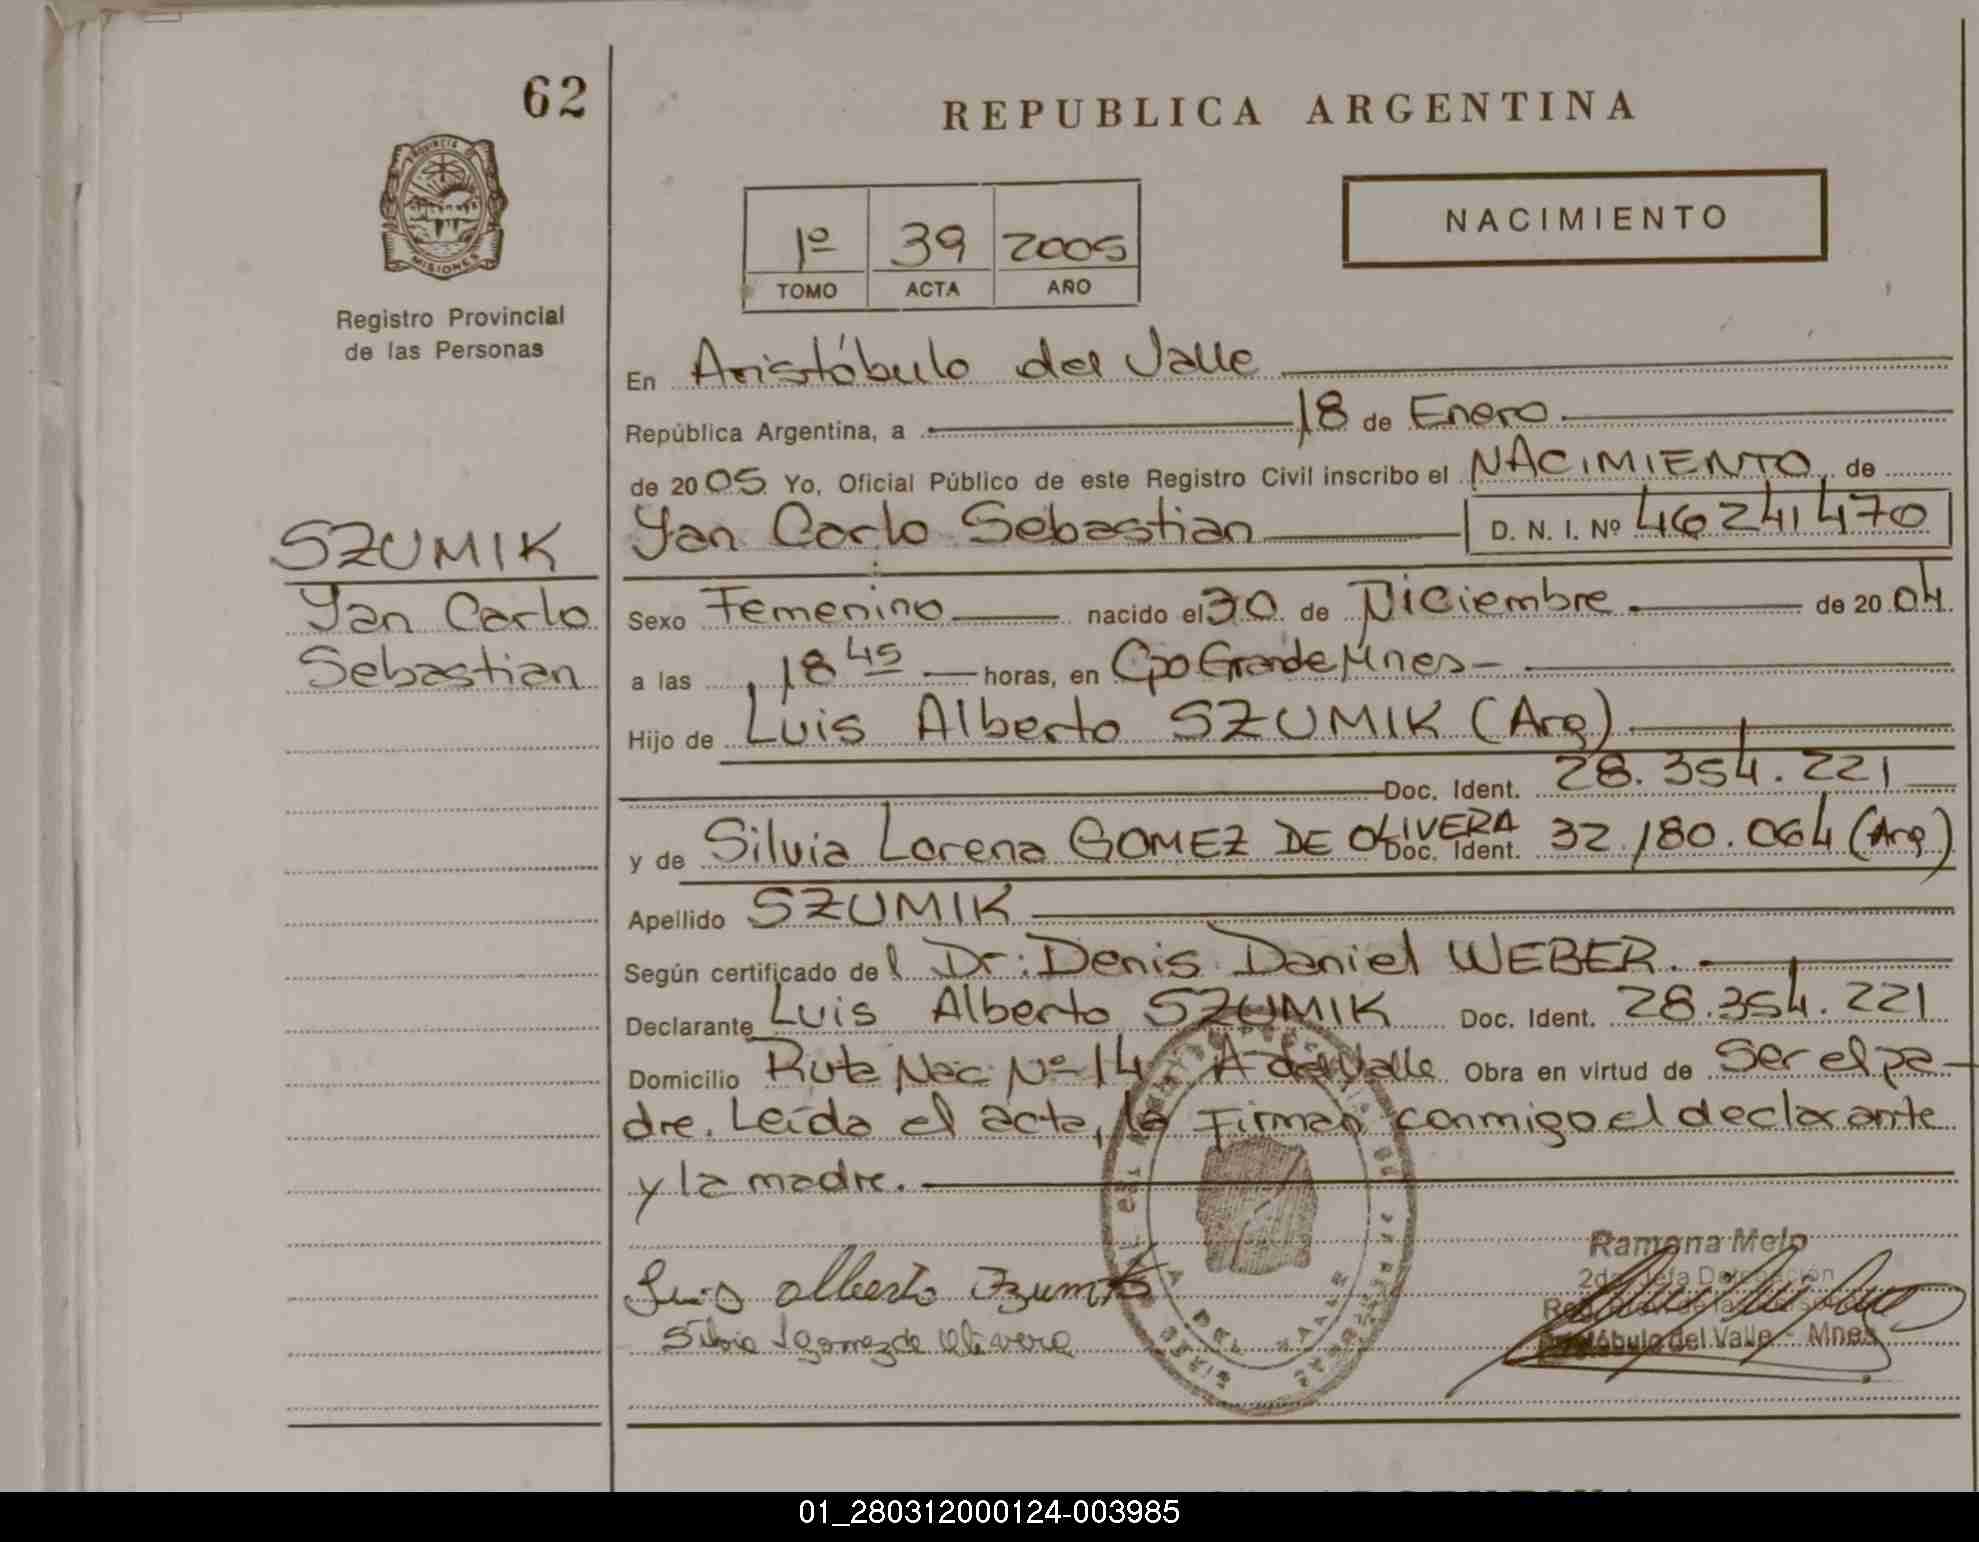 62
REPUBLICA ARGENTINA
NACIMIENTO
1º 39 2005
TOMO ACTA AÑO
PROVINCIA DE
MISIONES
Registro Provincial
de las Personas
En Aristóbulo del Valle
República Argentina, a 18 de Enero
de 2005. Yo, Oficial Público de este Registro Civil inscribo el NACIMIENTO de
Yan Carlo Sebastian D. N. I. Nº 46241470
SZUMIK
Yan Carlo
Sebastian
Sexo Femenino nacido el 30 de Diciembre de 2004
a las 18 45 horas, en Cpo Grande Mnes-
Hijo de Luis Alberto SZUMIK (Arg)
Doc. Ident. 28.354.221
y de Silvia Lorena GOMEZ DE OLIVERA Doc. Ident. 32.180.064 (Arg)
Apellido SZUMIK
Según certificado del Dr. Denis Daniel WEBER.
Declarante Luis Alberto SZUMIK Doc. Ident. 28.354.221
Domicilio Ruta Nac Nº 14 A del Valle Obra en virtud de Ser el pa-
dre. Leída el acta, la Firman conmigo el declarante
y la madre.
Luis Alberto Szumik
Silvia L gomez de Olivera
Ramona Melo
2da. Jefa Delegación
Aristóbulo del Valle - Mnes
DEL VALLE
01_280312000124-003985